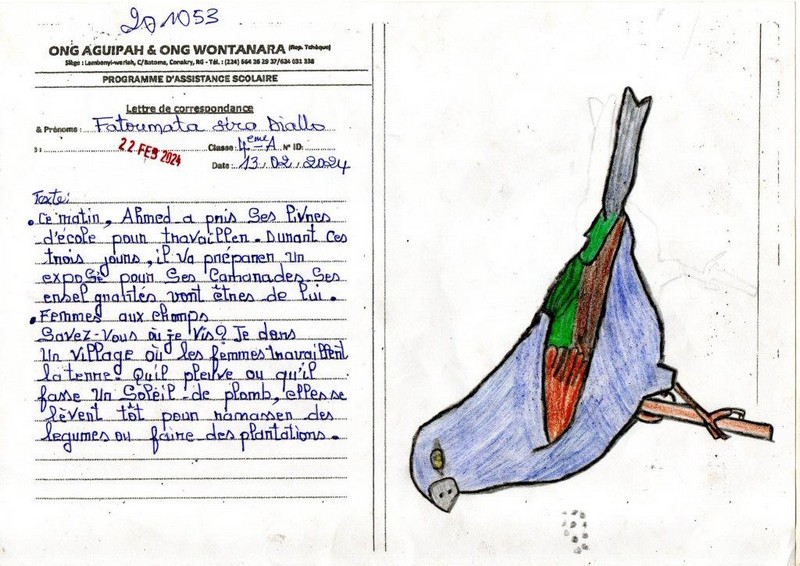 201053
ONG AGUIPAH & ONG WONTANARA (Rep. Tchèque)
Siège : Lambanyi-wariah, C/Ratoma, Conakry, RG - Tél. : (224) 664 26 29 37/624 031 338
PROGRAMME D'ASSISTANCE SCOLAIRE
Lettre de correspondance
& Prénoms : Fatoumata sira Diallo
22 FEB 2024
Classe : 4ème A N° ID:
Date : 13.02.2024
Texte:
• Ce matin, Ahmed a pris Ses livres
d'école pour travailler. Durant Ces
trois jours, il va préparer un
exposé pour Ses Camarades. Ses
vont êtres de lui.
• Femmes aux champs
Savez-Vous où je Vis? Je dans
Un village où les femmes travaillent
la terre. Qu'il pleuve ou qu'il
fasse un Soleil de plomb, elles se
lèvent tôt pour ramasser des
legumes ou faire des plantations.